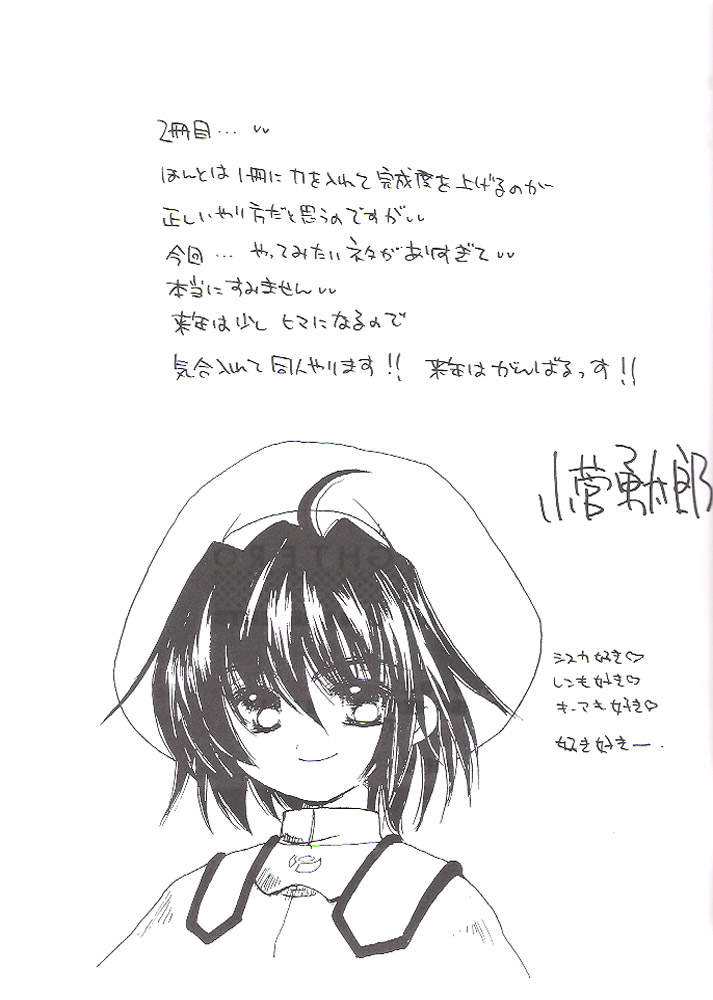 2冊目… 〃
ほんとは1冊に力を入れて完成度を上げるのが
正しいやり方だと思うのですが〃
今回… やってみたいネタがありすぎて〃
本当にすみません〃
来年は少しヒマになるので
気合入れて同人やります!! 来年はがんばるっす!!
小菅勇太郎
シスカ好き♡
レンも好き♡
キーアも好き♡
好き好きー.